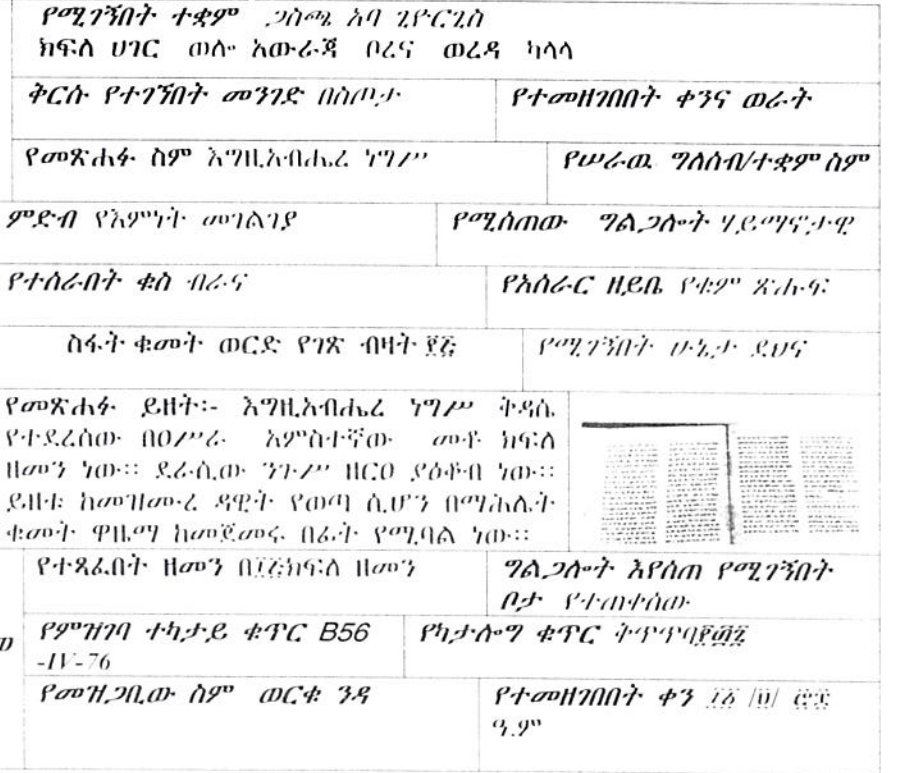 የሚገኝበት ተቋም ጋስጫ አባ ጊዮርጊስ
ክፍለ ሀገር ወሎ አውራጃ ቦረና ወረዳ ካላላ
ቅርሱ የተገኘበት መንገድ በስጦታ
የተመዘገበበት ቀንና ወራት
የመጽሐፉ ስም እግዚአብሔረ ነግሥ
የሠራዉ ግለሰብ/ተቋም ስም
ምድብ የእምነት መገልገያ
የሚሰጠው ግልጋሎት ሃይማኖታዊ
የተሰራበት ቁስ ብራና
የአሰራር ዘይቤ የቁም ጽሑፍ
ስፋት ቁመት ወርድ የገጽ ብዛት
የሚገኝበት ሁኔታ ደህና
የመጽሐፉ ይዘት፡- እግዚአብሔረ ነግሥ ቅዳሴ
የተደረሰው በዐሥራ አምስተኛው መቶ ክፍለ
ዘመን ነው፡፡ ደራሲው ንጉሥ ዘርዐ ያዕቆብ ነው፡፡
ይዘቱ ከመዝሙረ ዳዊት የወጣ ሲሆን በማሕሌት
ቁመት ዋዜማ ከመጀመሩ በፊት የሚባል ነው፡፡
የተጻፈበት ዘመን ክፍለ ዘመን
ግልጋሎት እየሰጠ የሚገኝበት
ቦታ የተጠቀሰው
የምዝገባ ተካታይ ቁጥር B56
-IV-76
የካታሎግ ቁጥር
የመዝጋቢው ስም ወርቁ ንዳ
የተመዘገበበት ቀን
ዓ.ም